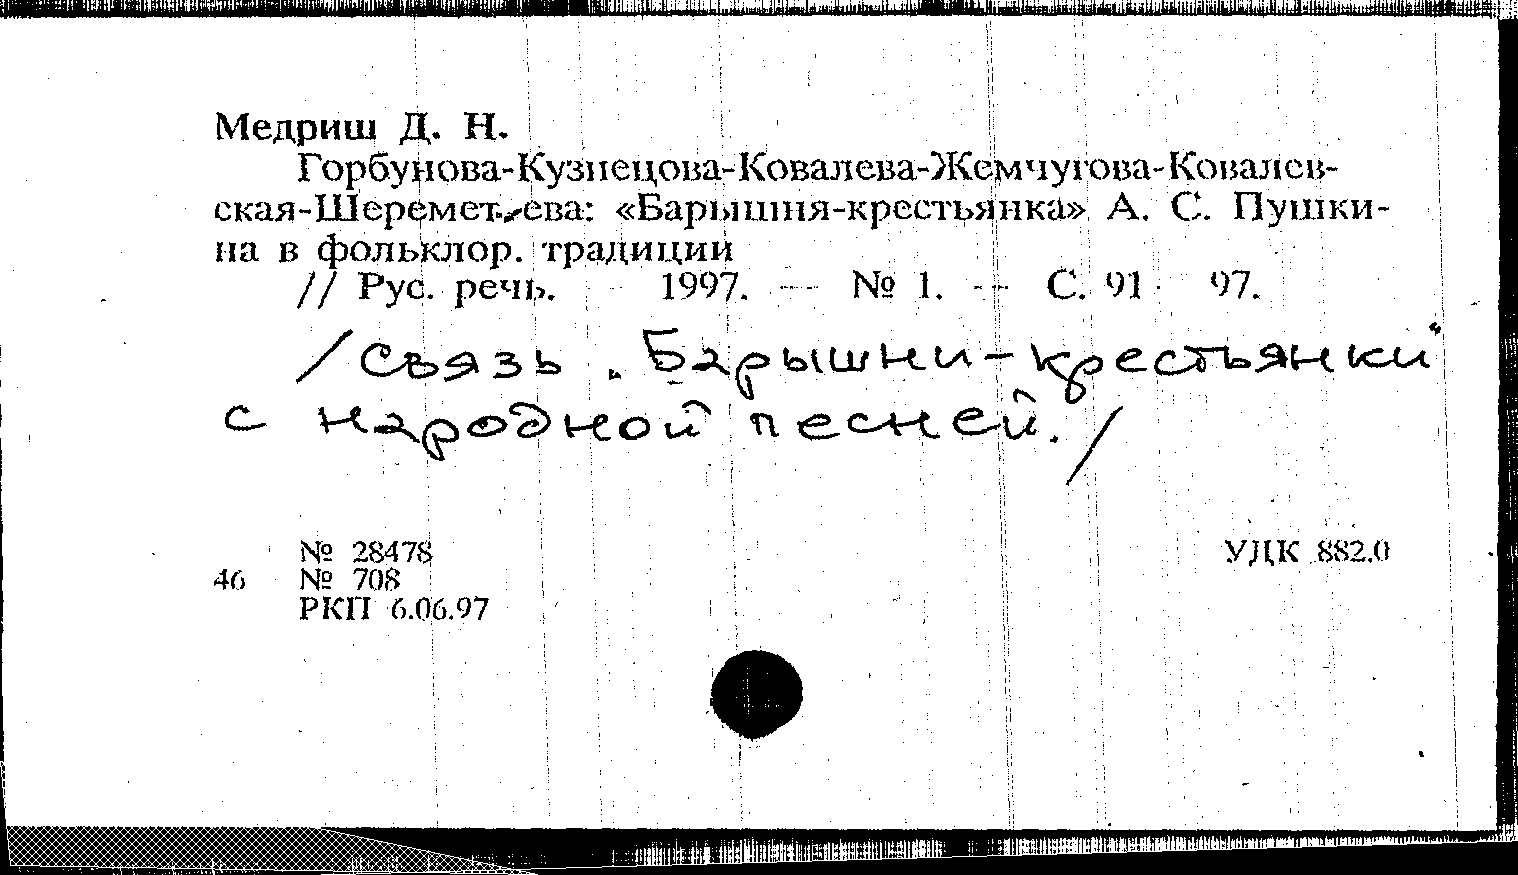 Медриш Д. Н.
Горбунова-Кузнецова-Ковалева-Жемчугова-Ковалев-
ская-Шеремет.ева: «Барышня-крестьянка» А. С. Пушки-
на в фольклор. традиции
// Рус. речь. 1997. — № 1. — С. 91 97.
/связь „Барышни-крестьянки“
с народной песней./
№ 28478 УДК 882.0
46 № 708
РКП 6.06.97